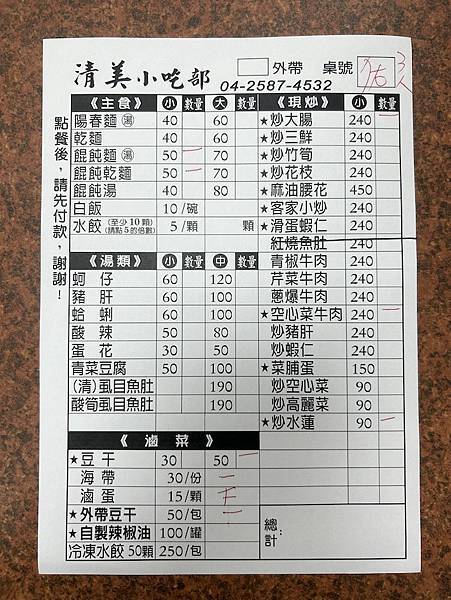 清美小吃部
外帶 桌號
3人
04-2587-4532
點餐後，請先付款，謝謝！
《主食》 小 數量 大 數量
陽春麵 湯 40 60
乾麵 40 60
餛飩麵 湯 50 一 70
餛飩乾麵 50 一 70
餛飩湯 40 80
白飯 10/碗
水餃 (至少10顆) (請點5的倍數) 5/顆 顆
《湯類》 小 數量 中 數量
蚵仔 60 120
豬肝 60 100
蛤蜊 60 100
酸辣 50 80
蛋花 30 50
青菜豆腐 50 100
(清)虱目魚肚 190
酸筍虱目魚肚 190
《滷菜》
★豆干 30 50 一
海帶 30/份 一
滷蛋 15/顆
★外帶豆干 50/包
★自製辣椒油 100/罐
冷凍水餃 50顆 250/包
《現炒》 小 數量
★炒大腸 240 一
★炒三鮮 240
★炒竹筍 240
★炒花枝 240
★麻油腰花 450
★客家小炒 240
★滑蛋蝦仁 240
紅燒魚肚 240
青椒牛肉 240
芹菜牛肉 240
蔥爆牛肉 240
★空心菜牛肉 240 一
炒豬肝 240
炒蝦仁 240
★菜脯蛋 150
炒空心菜 90
炒高麗菜 90
★炒水蓮 90 一
總計：